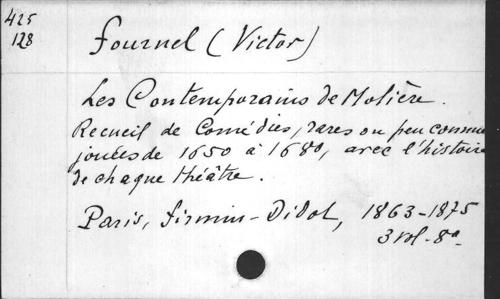 425
128
Fournel (Victor)
Les Contemporains de Molière.
Recueil de Comédies, rares ou peu connue
jouées de 1650 à 1680, avec l'histoire
de chaque théâtre.
Paris, Firmin-Didot, 1863-1875
3 vol. 8º.